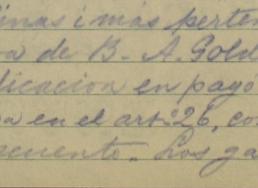 inas i más perten
a de B. A. Gold
dicacion en payó
a en el art: 26, co
cuento. Los ga